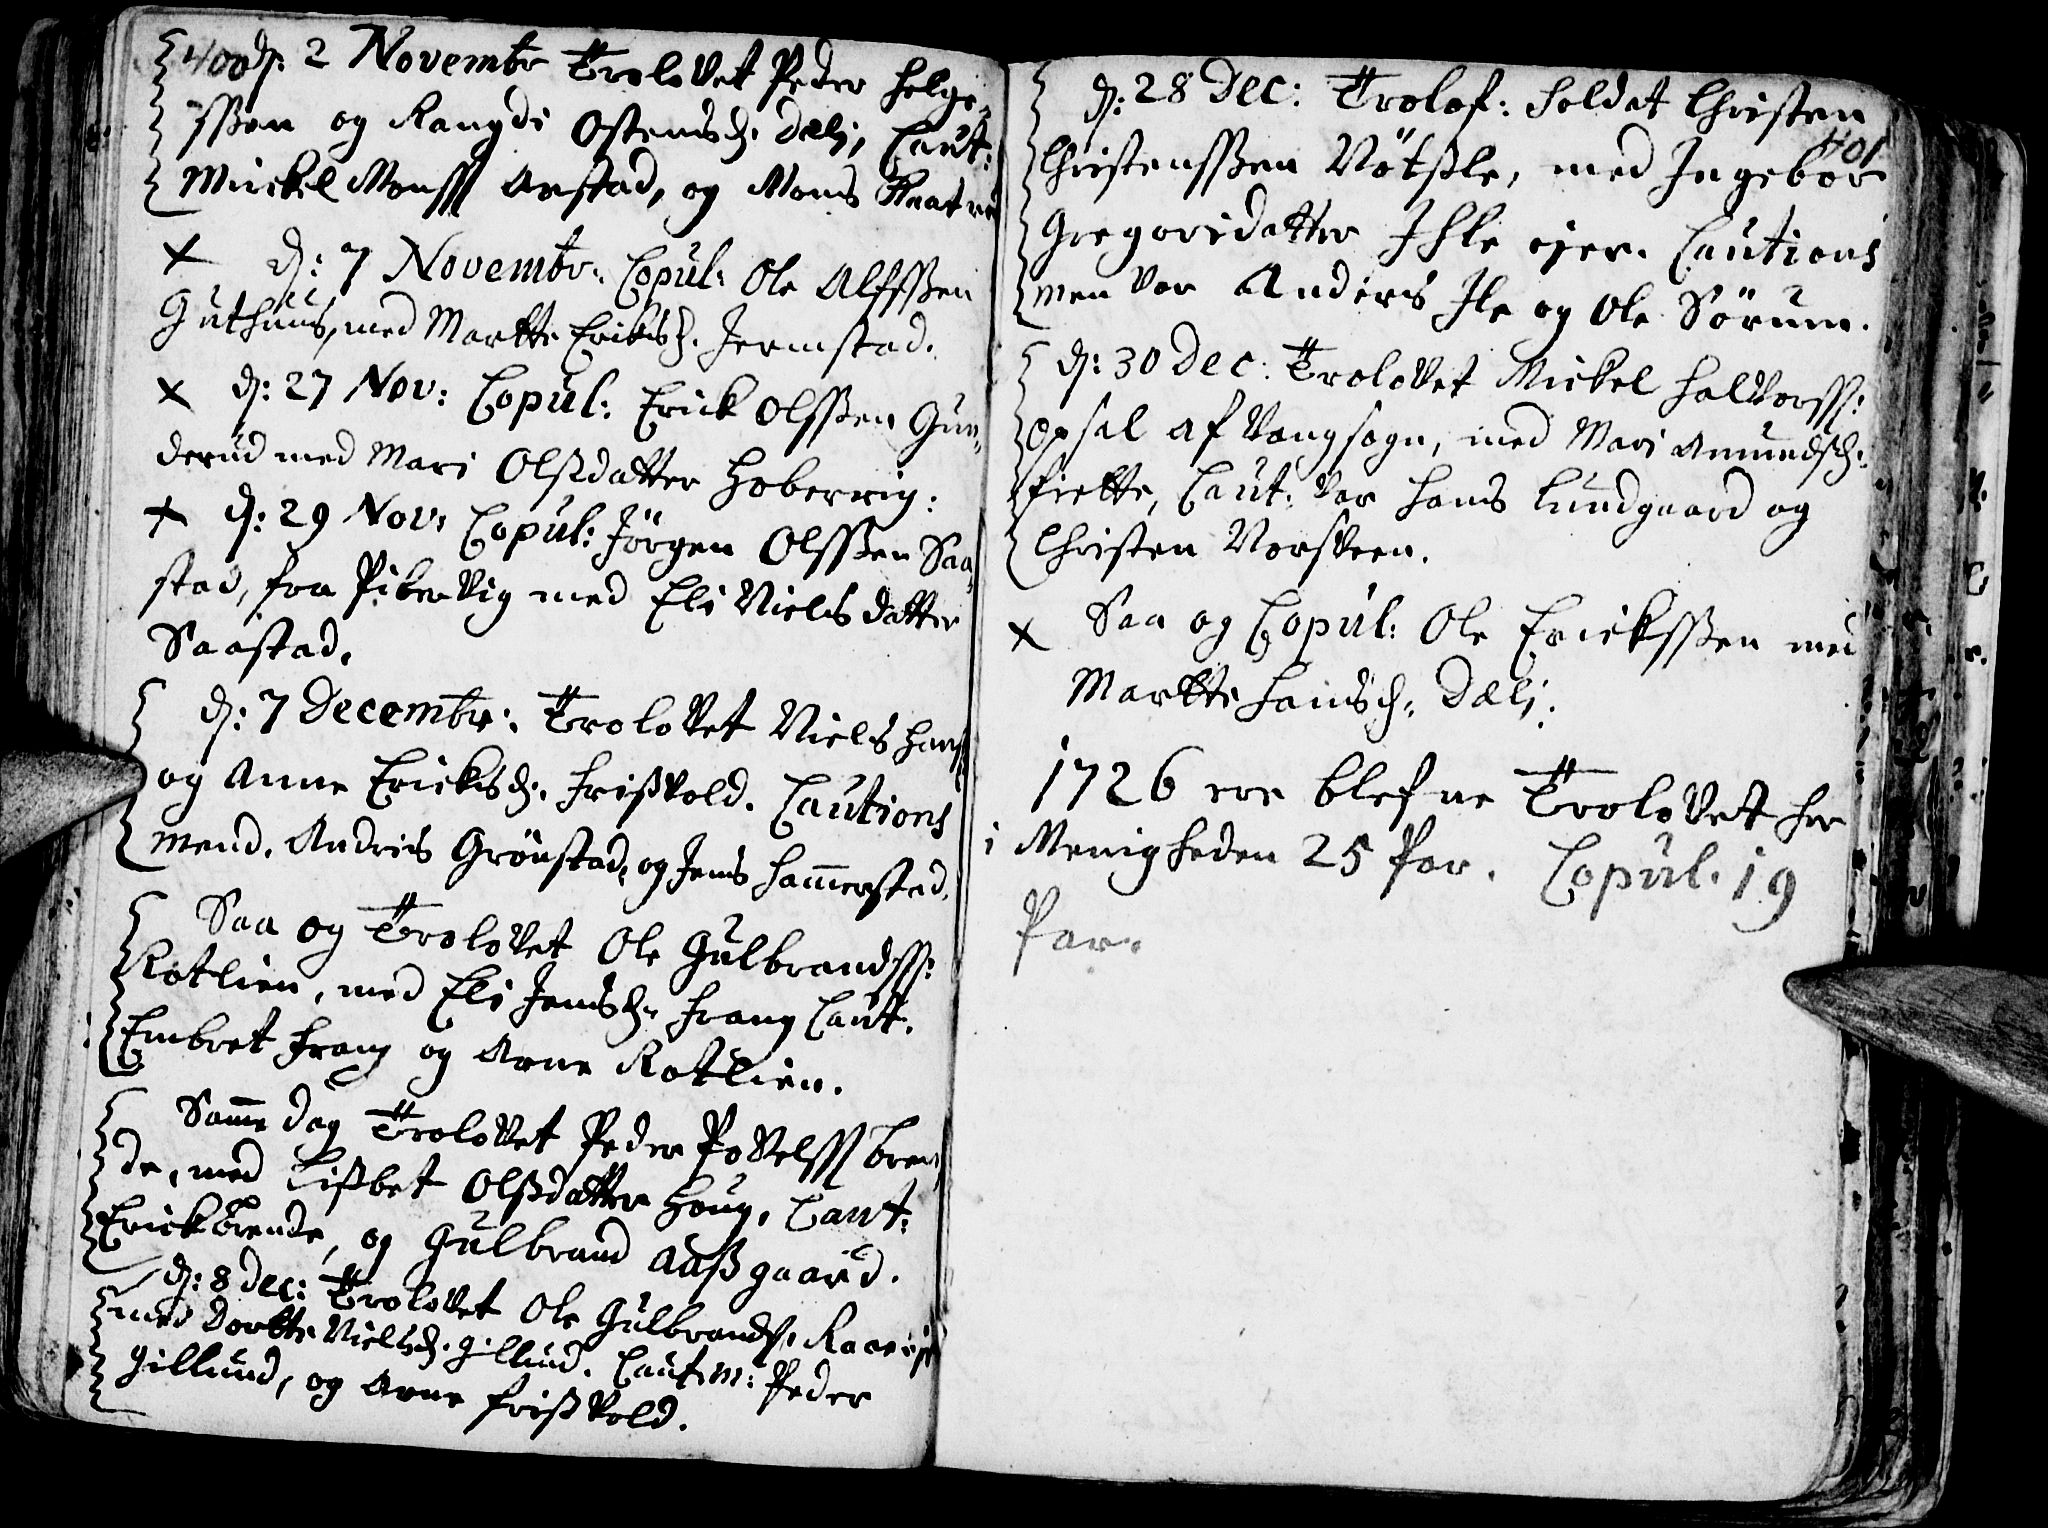 400
d: 2 Novembr Trolovet Peder Helge-
ssen og Rangdi Ostensd. Dæli, Caut:
Mickel Monss Arstad, og Mons
d: 7 Novembr. Copul: Ole Alffssen
Guthuus, med Martte Eriksd. Jermstad.
d: 27 Nov: Copul: Erick Olssen Gun-
derud med Mari Olsdatter Hoberrig:
d: 29 Nov: Copul: Jörgen Olssen Saa-
stad, fra Pibervig med Eli Nielsdatter
Saastad.
d: 7 Decembr: Trolovet Niels Hanss
og Anne Ericksd. Frisvold. Cautions
mend. Andris Grönstad, og Jens Hammerstad.
Saa og Trolovet Ole Gulbrandss:
Rotlien, med Eli Jensd. Frang Caut.
Embret Frang og Arne Rotlien.
Samme dag Trolovet Peder Povelss Bren-
de, med Lisbet Olsdatter Houg, Caut:
Erick Brende, og Gulbrand Aasgaard.
d: 8 Dec: Trolovet Ole Gulbrands.
med Dortte Nielsd. Gillund. Caut.m: Peder
Gillund, og Arne Frisvold.
401
d: 28 Dec: Trolof: Soldat Christen
Christenssen Nötsle, med Ingebor
Gregorsdatter Ihle ejer. Cautions
men var Anders Ile og Ole Sörum.
d: 30 Dec: Trolovet Mickel Halvorss:
Opsal af Vangsogn, med Mari Amundsd.
Fiette, Caut: var Hans Lundgaard og
Christen Norsveen.
Saa og Copul: Ole Erickssen med
Martte Hansd. Dæli.
1726 ere blefne Trolovet her
i Menigheden 25 Par. Copul. 19
Par.